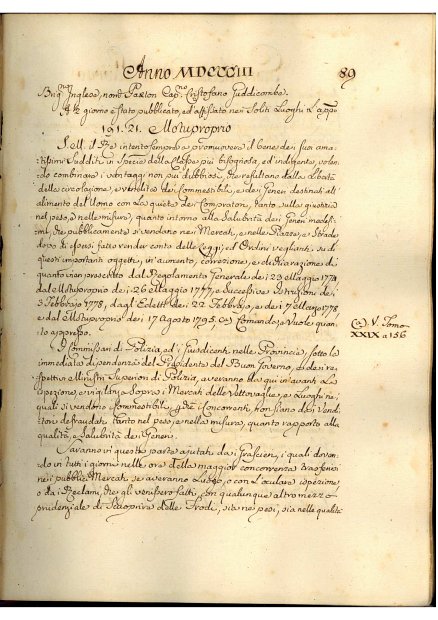 Anno MDCCCIII
89
Brig.no Inglese, nom.to Paxton Cap.no Cristofano Guddicombe.
A dì giorno è stato pubblicato, ed affisso nei Soliti Luoghi L'app.
191. 21. Motuproprio
S. M. il Re intento sempre a promuovere il bene dei suoi ama:
tissimi Sudditi in specie della Classe più bisognosa, ed indigente, volen:
do combinare i vantaggi non più dubbiosi, che resultano dalla Libertà
della circolazione, e vendita dei Commestibili, e dei Generi destinati all'
alimento dell'Uomo con La quiete dei Compratori, tanto sulla giustizia
nel peso, e nelle misure, quanto intorno alla Salubrità dei Generi medesi:
mi, che pubblicamente si vendono nei Mercati, e nelle Piazze, e Strade
dove di essi fatto render conto delle Leggi, ed Ordini veglianti su di
questi importanti oggetti, in aumento, correzione, e dichiarazione di
quanto vien prescritto dal Regolamento Generale dei 29 Maggio 1774
dal Motuproprio dei 26 Maggio 1777, e successive istruzioni dei
3 Febbraio 1778, dagl'Editti dei 22 Febbraio, e dei 7 Maggio 1778
e dal Motuproprio dei 17 Agosto 1795. (a) Comanda, e Vuole quan:
to appresso.
(a) V. Tomo
XXIX a 156
I Commissari di Polizia, ed i Giusdicenti nelle Provincie, sotto la
immediata dipendenza del Presidente del Buon Governo, e dei re:
spettivi Ministri Superiori di Polizia, averanno da qui in avanti La
ispezione, e vigilanza sopra i Mercati delle Vettovaglie, e Luoghi nei
quali si vendono Commestibili, che i Concorrenti non siano dai Vendi:
tori defraudati, tanto nel peso, e nella misura, quanto rapporto alla
qualità, e Salubrità dei Generi.
Saranno in questa parte ajutati dai Grascieri, i quali doveran:
do in tutti i giorni nelle ore della maggior concorrenza trasferirsi
nei pubblici Mercati se averanno Luogo, o con L'oculare ispezione,
o da Reclami, che gli venissero fatti, o in qualunque altro mezzo
prudenziale di Scoprire delle Frodi, sia nei pesi, sia nelle qualità